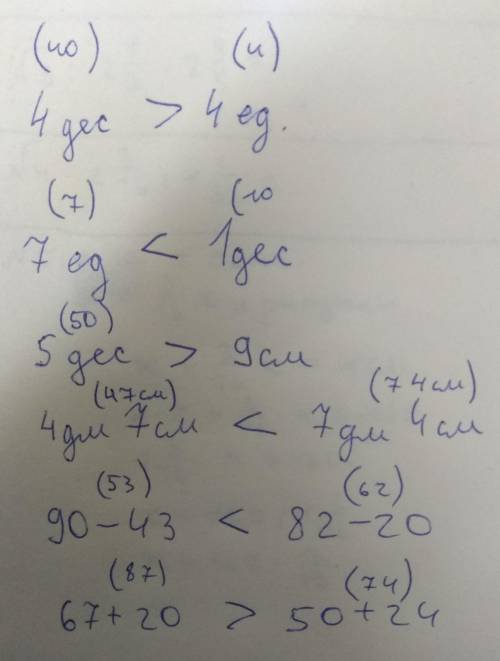 (40) (4)
4 дес > 4 ед.
(7) (10
7 ед < 1 дес
(50)
5 дес > 9 см
(47 см) (74 см)
4 дм 7 см < 7 дм 4 см
(53) (62)
90 - 43 < 82 - 20
(87) (74)
67 + 20 > 50 + 24